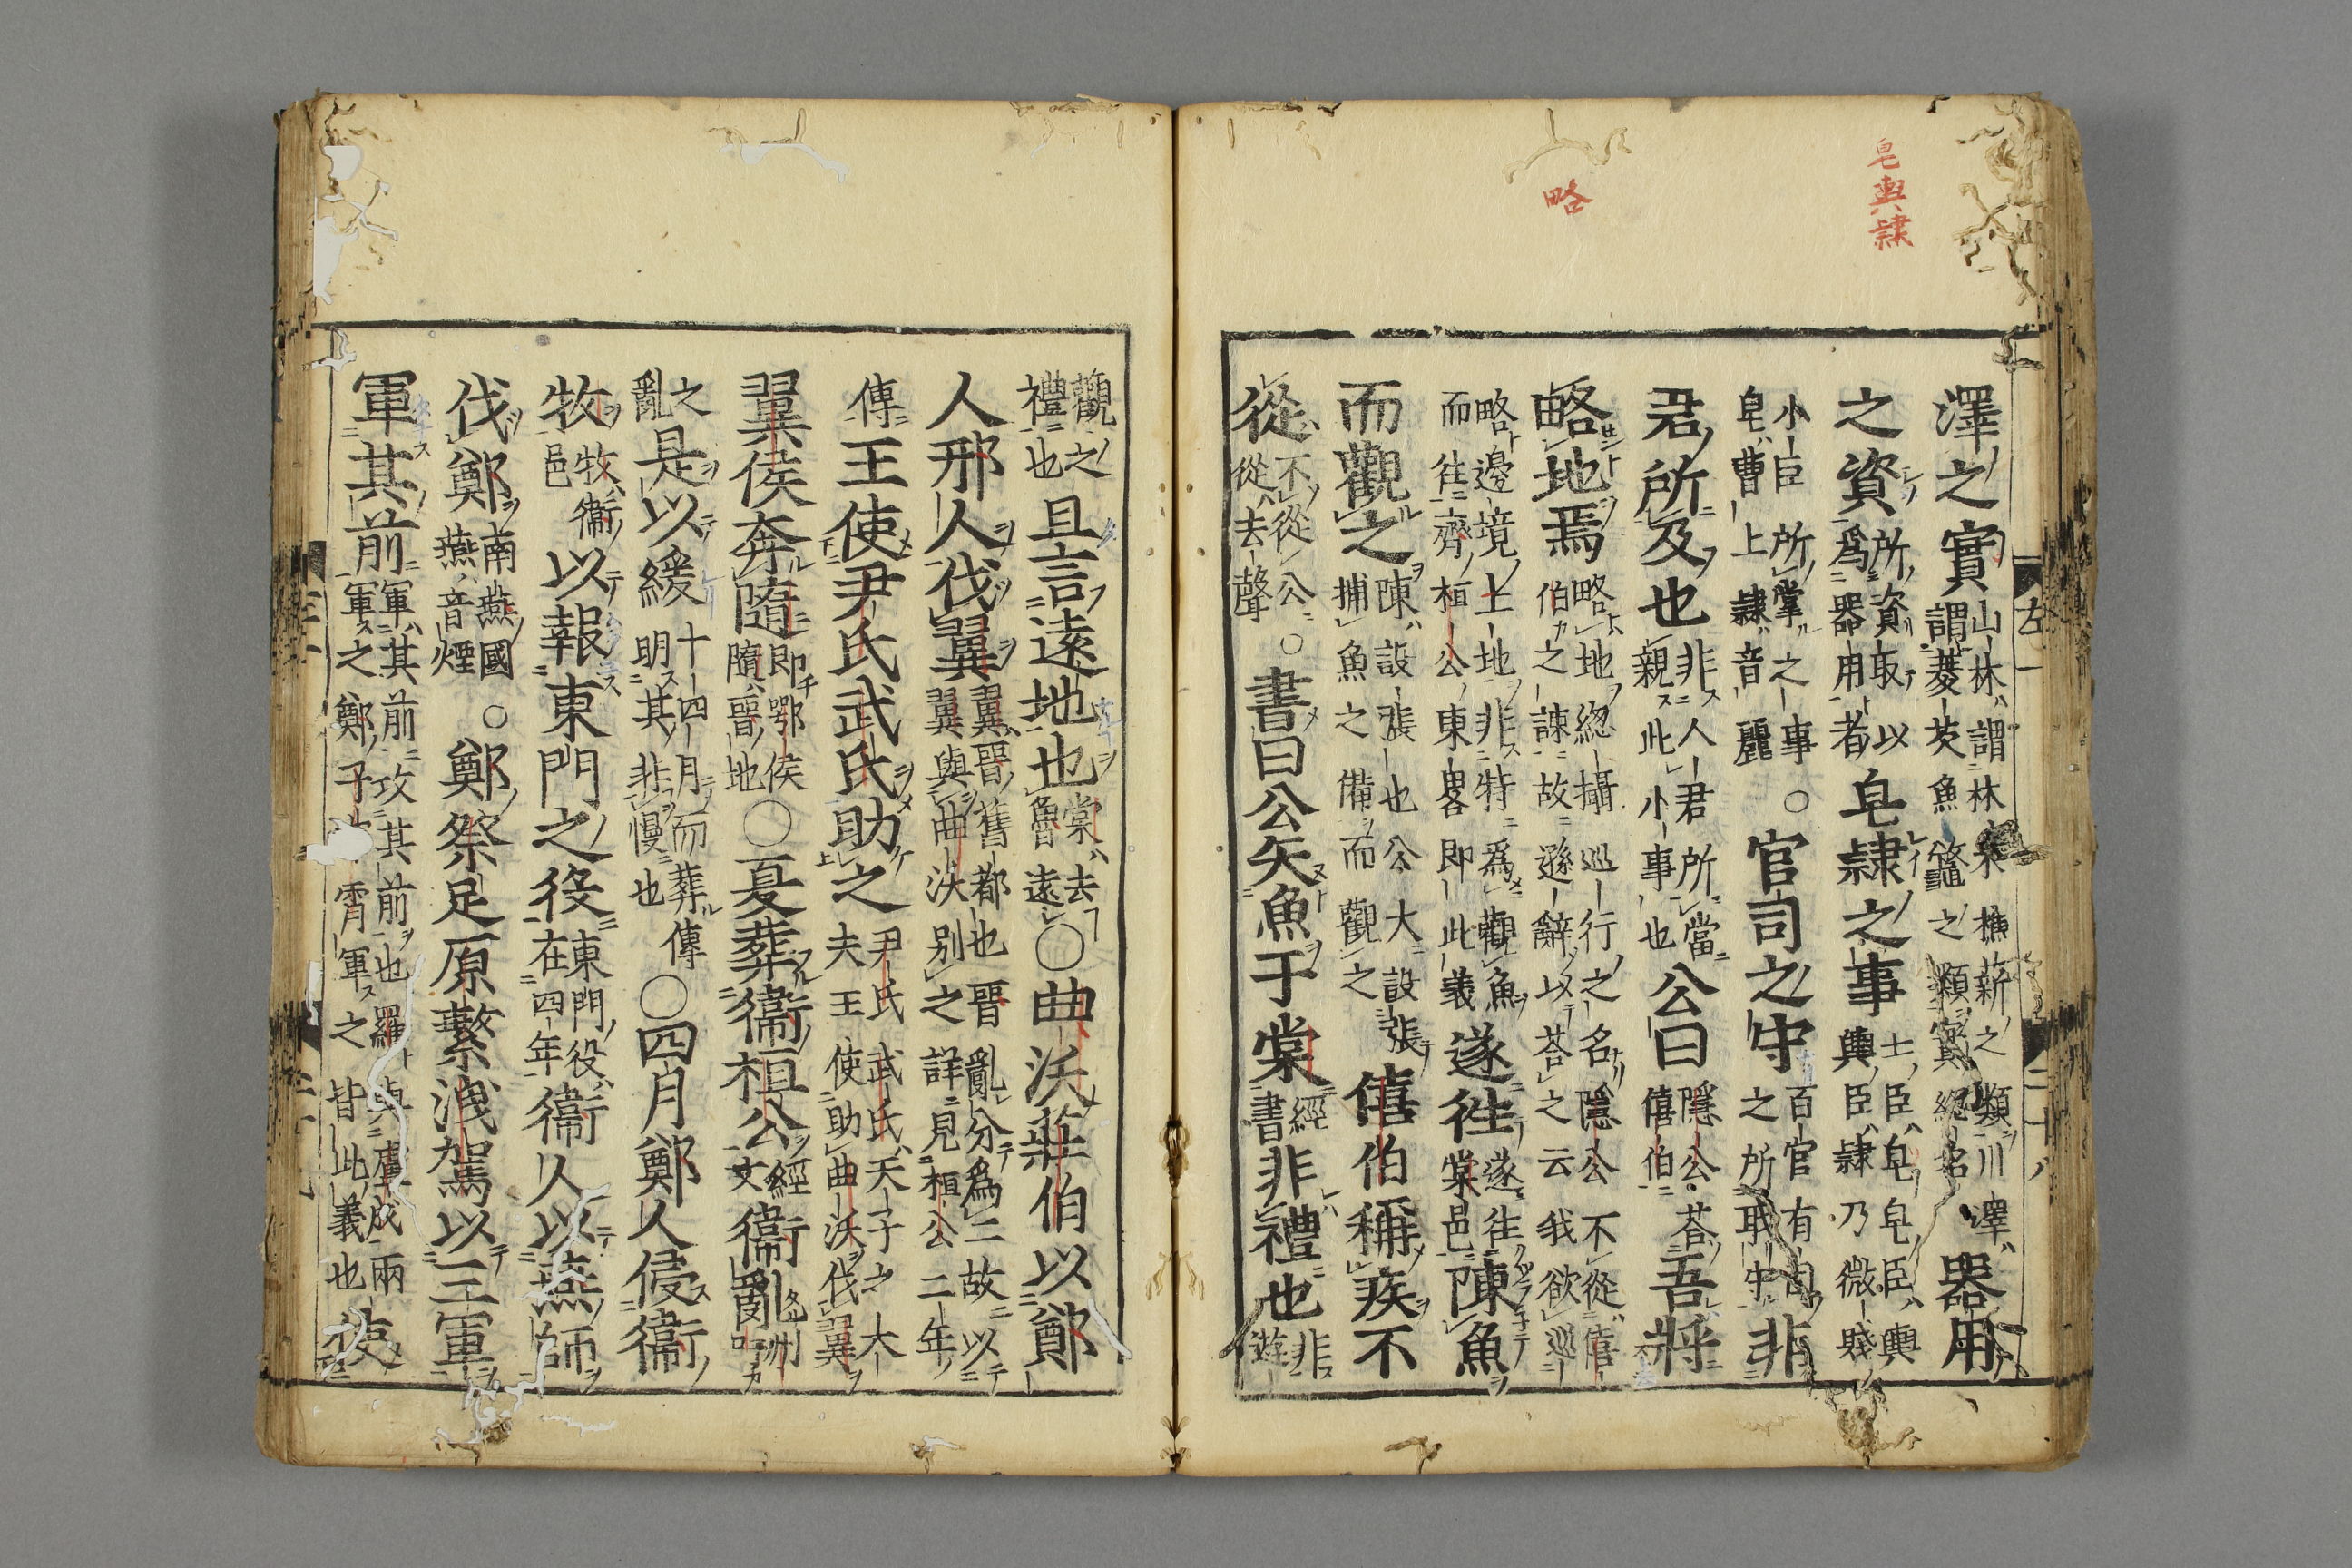 皂輿隸
略
左一 二十八
澤之實山林謂林木樵薪之類川澤謂菱芡魚鼈之類實總名器用
之資所資取以爲器用者皂隸之事士臣皂皂臣輿輿臣隸乃微賤
小臣所掌之事皂曹上隸音麗○官司之守百官有司之所職守非
君所及也非人君所當親此小事也公曰隱公荅僖伯吾將
略地焉略地總攝巡行之名隱公不從僖伯之諫故遜辭以荅之云我欲巡
略邊境上地非特爲觀魚而往齊桓公東畧即此義遂往遂往棠邑陳魚
而觀之陳設張也公大設張捕魚之備而觀之僖伯稱疾不
從不從公從去聲○書曰公矢魚于棠經書非禮也非遊
觀之禮也且言遠地也棠去魯遠○曲沃莊伯以鄭
人邢人伐翼翼晉舊都也晉亂分爲二故以翼與曲沃別之詳見桓公二年
傳王使尹氏武氏助之尹氏武氏天子之大夫王使助曲沃伐翼
翼侯奔隨即鄂侯隨晉地○夏葬衞桓公經文衞亂州吁
之亂是以緩十四月而葬傳明其非慢也○四月鄭人侵衞
牧牧衞邑以報東門之役東門役在四年衞人以燕師
伐鄭南燕國燕音煙○鄭祭足原繁洩駕以三軍
軍其前軍其前攻其前也羅與盧戎兩軍之鄭子霄軍之皆此義也使